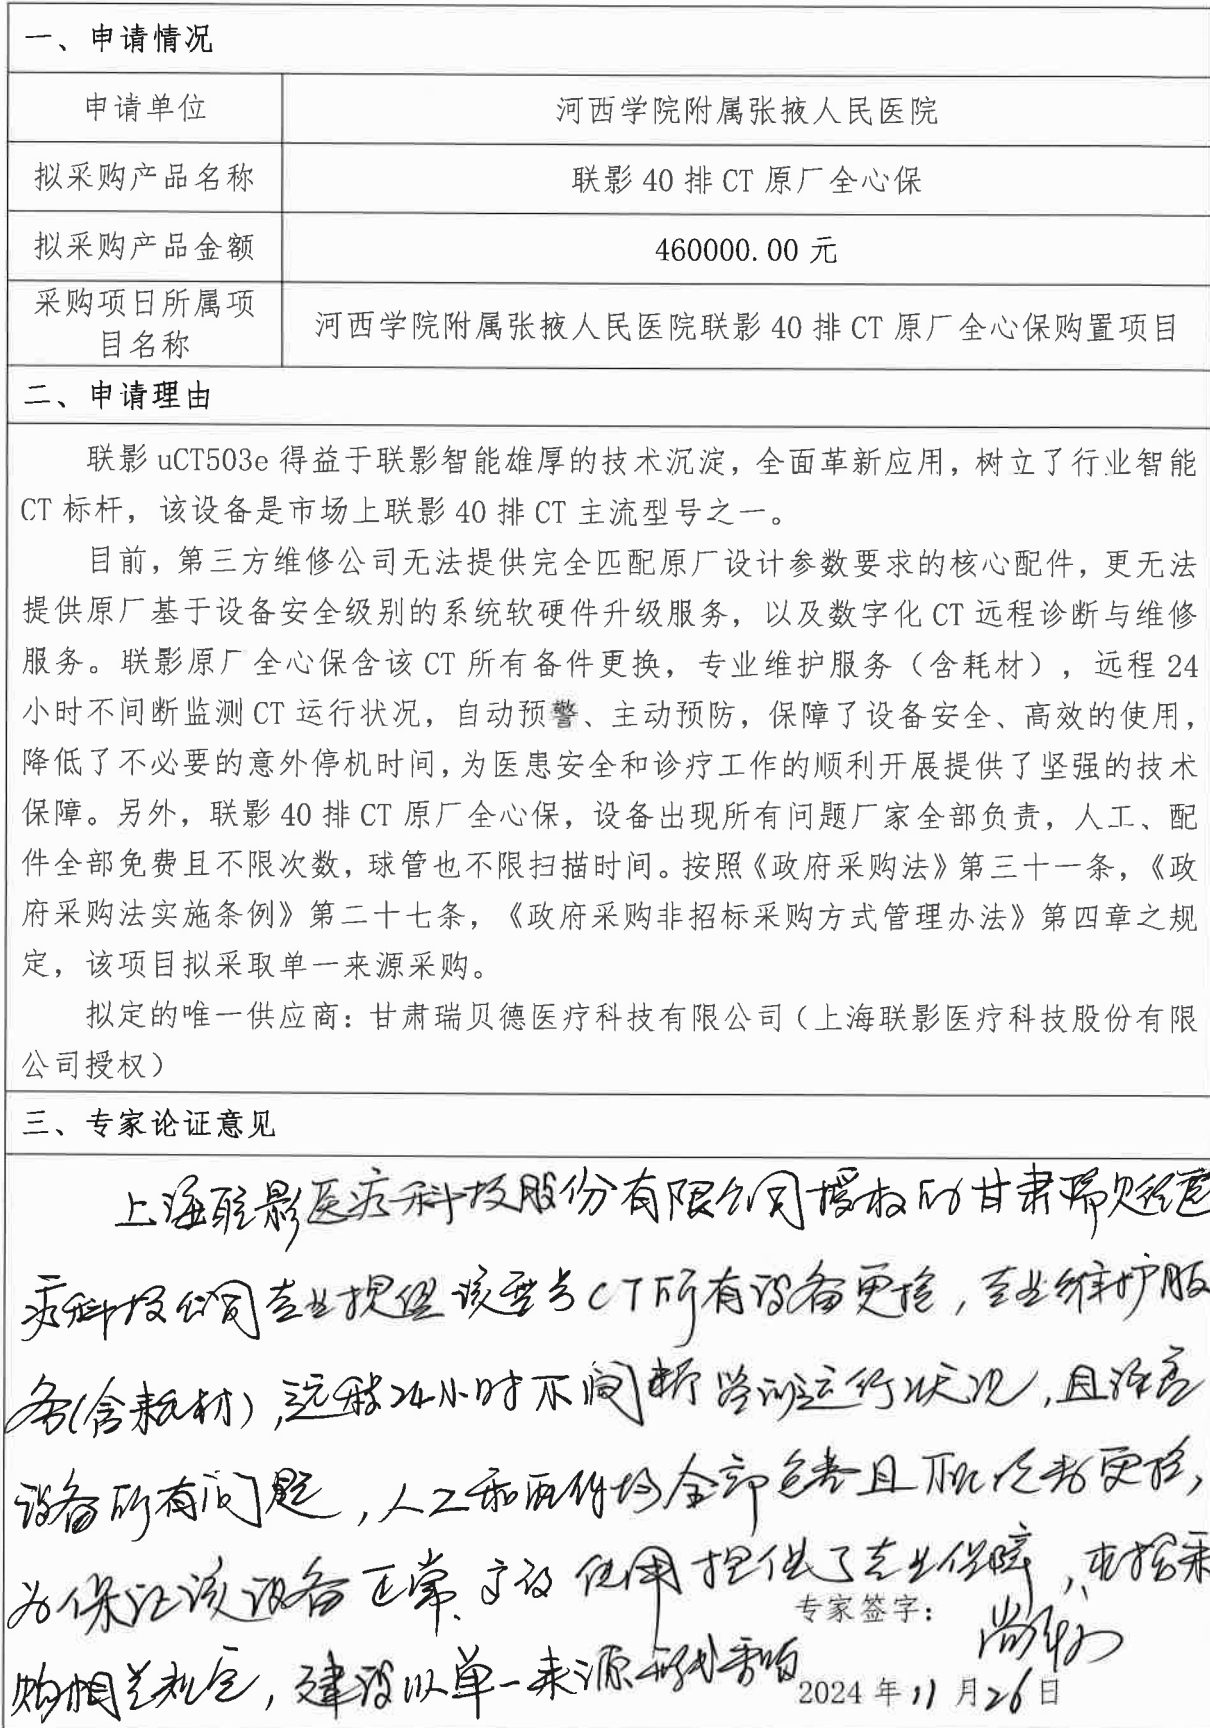 一、申请情况
申请单位
河西学院附属张掖人民医院
拟采购产品名称
联影 40 排 CT 原厂全心保
拟采购产品金额
460000.00 元
采购项日所属项
目名称
河西学院附属张掖人民医院联影 40 排 CT 原厂全心保购置项目
二、申请理由
联影 uCT503e 得益于联影智能雄厚的技术沉淀，全面革新应用，树立了行业智能
CT 标杆，该设备是市场上联影 40 排 CT 主流型号之一。
目前，第三方维修公司无法提供完全匹配原厂设计参数要求的核心配件，更无法
提供原厂基于设备安全级别的系统软硬件升级服务，以及数字化 CT 远程诊断与维修
服务。联影原厂全心保含该 CT 所有备件更换，专业维护服务（含耗材），远程 24
小时不间断监测 CT 运行状况，自动预警、主动预防，保障了设备安全、高效的使用，
降低了不必要的意外停机时间，为医患安全和诊疗工作的顺利开展提供了坚强的技术
保障。另外，联影 40 排 CT 原厂全心保，设备出现所有问题厂家全部负责，人工、配
件全部免费且不限次数，球管也不限扫描时间。按照《政府采购法》第三十一条，《政
府采购法实施条例》第二十七条，《政府采购非招标采购方式管理办法》第四章之规
定，该项目拟采取单一来源采购。
拟定的唯一供应商：甘肃瑞贝德医疗科技有限公司（上海联影医疗科技股份有限
公司授权）
三、专家论证意见
上海联影医疗科技股份有限公司授权的甘肃瑞贝德医
疗科技公司专业提供该型号CT所有设备更换，专业维护服
务(含耗材)，远程24小时不间断监测运行状况，且
设备所有问题，人工和配件均全部免费且不限次数更换，
为保证该设备正常、高效使用提供了专业保障，根据采
购相关规定，建议以单一来源形式采购
专家签字：
2024 年 11 月 26 日